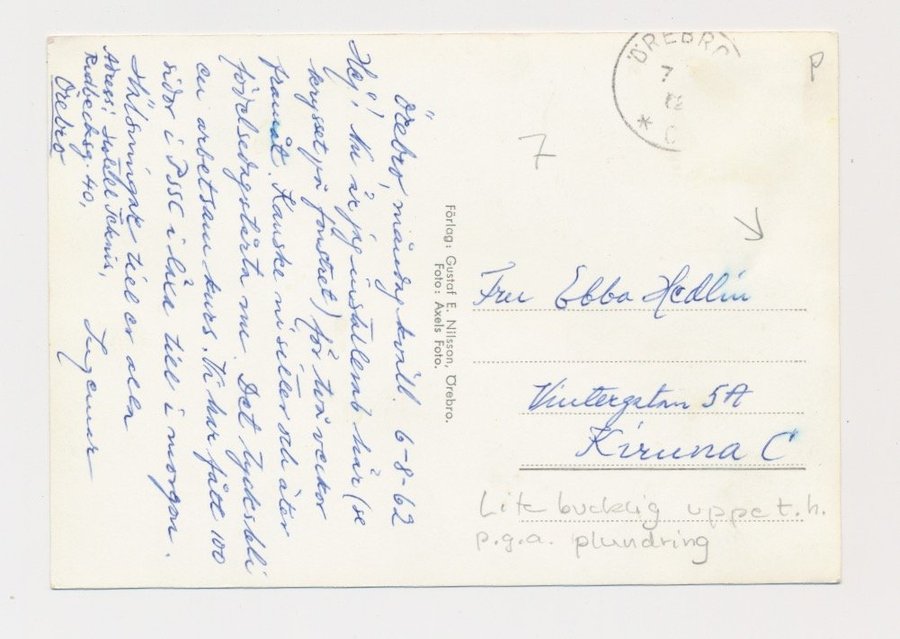 Örebro, måndag kväll. 6-8-62
Hej! Nu är jag installerad här (se
krysset på fönstret) för två veckor
framåt. Kanske ni sitter och äter
födelsedagstårta nu. Det tycks bli
en arbetsam kurs. Vi har fått 100
sidor i PSSC i läxa till i morgon.
Hälsningar till er alla
Ingemar
Adress: Hotell Teknis,
Rudbecksg. 40,
Örebro
Förlag: Gustaf E. Nilsson, Örebro.
Foto: Axels Foto.
ÖREBRO
7
P
7
Fru Ebba Hedlin
Vintergatan 5A
Kiruna C
Lite bucklig uppe t.h.
p.g.a. plundring